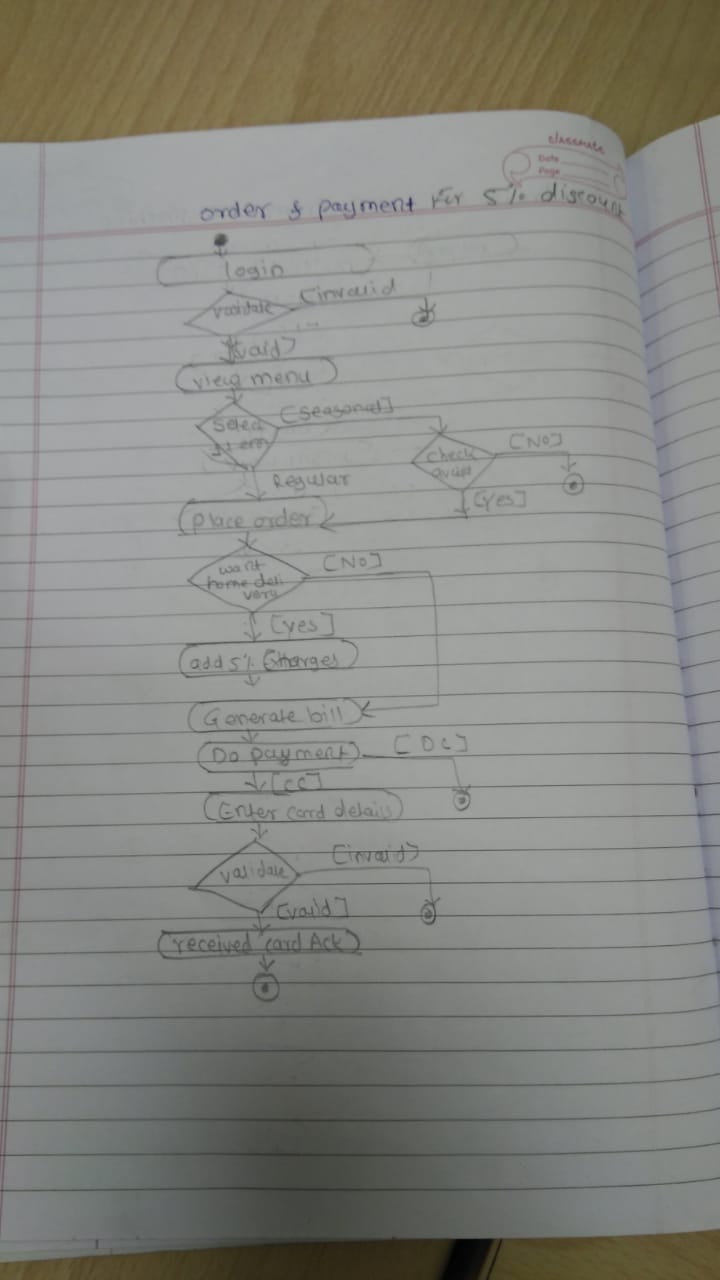 classmate
Date
Page
order & payment for 5% discount
login
validate [invalid
[valid]
(view menu)
select [seasonal]
check [NO]
Regular
[yes]
(place order)
want [NO]
home deli
very
[yes]
(add 5% charges)
(Generate bill)
(Do payment) [DC]
[CC]
(Enter card details)
validate [invalid]
[valid]
(received card Ack)